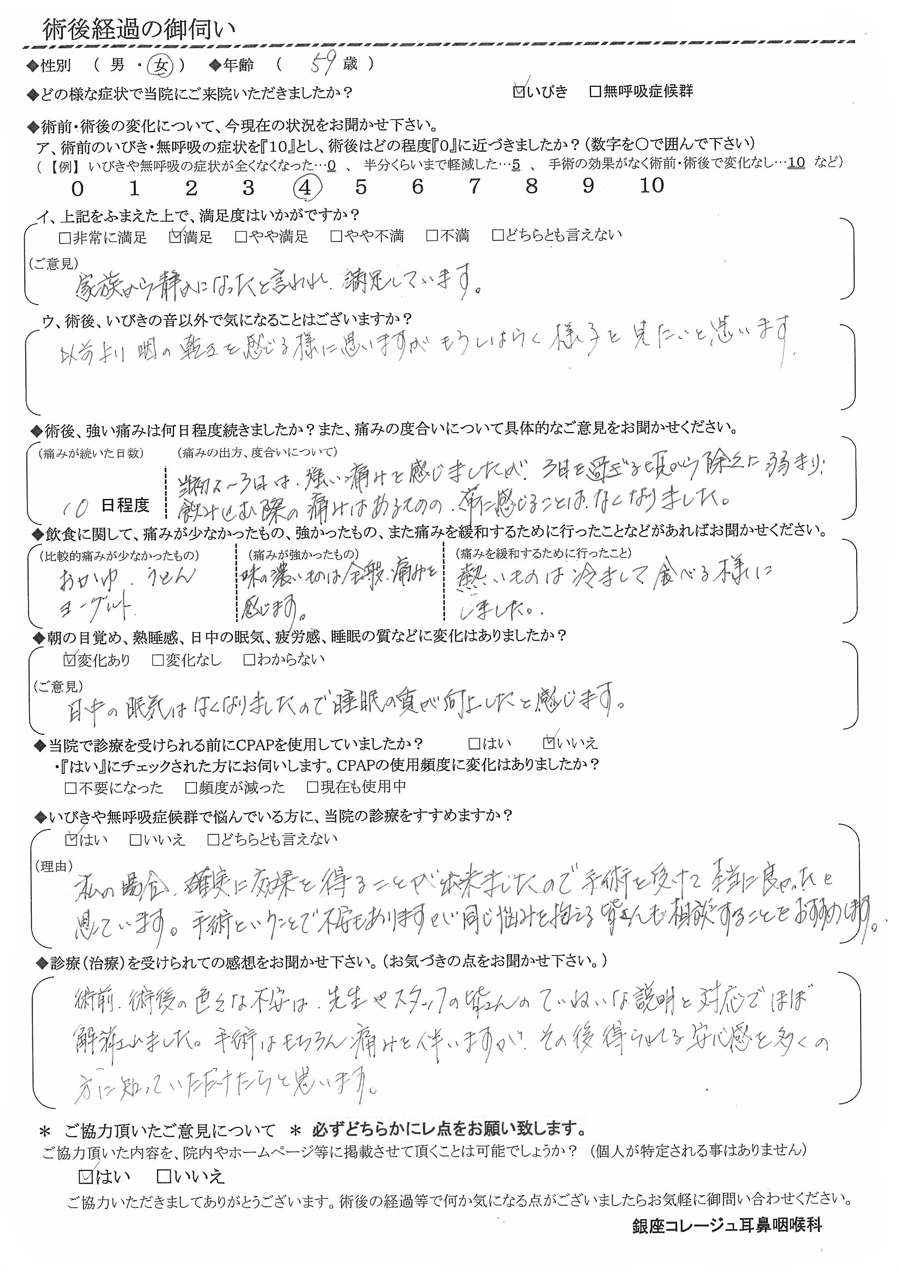 術後経過の御伺い
◆性別 ( 男 ・ 女 ) ◆年齢 ( 59 歳 )
◆どの様な症状で当院にご来院いただきましたか? ☑いびき □無呼吸症候群
◆術前・術後の変化について、今現在の状況をお聞かせ下さい。
ア、術前のいびき・無呼吸の症状を『10』とし、術後はどの程度『0』に近づきましたか?(数字を○で囲んで下さい)
(【例】いびきや無呼吸の症状が全くなくなった…0 、 半分くらいまで軽減した…5 、 手術の効果がなく術前・術後で変化なし…10 など)
0 1 2 3 ④ 5 6 7 8 9 10
イ、上記をふまえた上で、満足度はいかがですか?
□非常に満足 ☑満足 □やや満足 □やや不満 □不満 □どちらとも言えない
(ご意見)
家族から静かになったと言われ、満足しています。
ウ、術後、いびきの音以外で気になることはございますか?
以前より咽の乾燥を感じる様に思いますがもうしばらく様子を見たいと思います
◆術後、強い痛みは何日程度続きましたか?また、痛みの度合いについて具体的なご意見をお聞かせください。
(痛みが続いた日数) (痛みの出方、度合いについて)
当初2~3日は、強い痛みを感じましたが、3日を過ぎる頃から除々に弱まり、
10 日程度 飲み込む際の痛みはあるものの、常に感じることはなくなりました。
◆飲食に関して、痛みが少なかったもの、強かったもの、また痛みを緩和するために行ったことなどがあればお聞かせください。
(比較的痛みが少なかったもの) (痛みが強かったもの) (痛みを緩和するために行ったこと)
おかゆ、うどん 味の濃いものは全般、痛みを 熱いものは冷まして食べる様に
ヨーグルト 感じます。 しました。
◆朝の目覚め、熟睡感、日中の眠気、疲労感、睡眠の質などに変化はありましたか?
☑変化あり □変化なし □わからない
(ご意見)
日中の眠気はなくなりましたので睡眠の質が向上したと感じます。
◆当院で診療を受けられる前にCPAPを使用していましたか? □はい ☑いいえ
・『はい』にチェックされた方にお伺いします。CPAPの使用頻度に変化はありましたか?
□不要になった □頻度が減った □現在も使用中
◆いびきや無呼吸症候群で悩んでいる方に、当院の診療をすすめますか?
☑はい □いいえ □どちらとも言えない
(理由)
私の場合、確実に効果を得ることが出来ましたので手術を受けて本当に良かったと
思っています。手術ということで不安もありますが同じ悩みを抱える皆さんも相談することをおすすめします。
◆診療(治療)を受けられての感想をお聞かせ下さい。(お気づきの点をお聞かせ下さい。)
術前、術後の色々な不安は、先生やスタッフの皆さんのていねいな説明と対応でほぼ
解消しました。手術はもちろん痛みを伴いますが、その後得られる安心感を多くの
方に知っていただけたらと思います。
* ご協力頂いたご意見について * 必ずどちらかにレ点をお願い致します。
ご協力頂いた内容を、院内やホームページ等に掲載させて頂くことは可能でしょうか? (個人が特定される事はありません)
☑はい □いいえ
ご協力いただきましてありがとうございます。術後の経過等で何か気になる点がございましたらお気軽に御問い合わせください。
銀座コレージュ耳鼻咽喉科